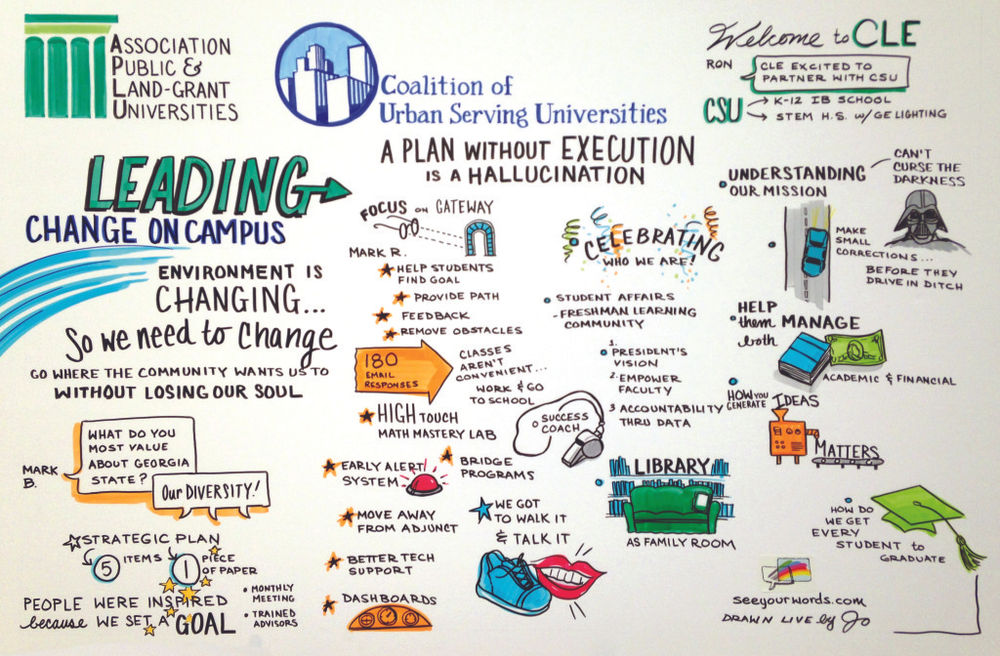 ASSOCIATION
PUBLIC &
LAND-GRANT
UNIVERSITIES
Coalition of
Urban Serving Universities
Welcome to CLE
RON
CLE EXCITED TO
PARTNER WITH CSU
CSU
K-12 IB SCHOOL
STEM H.S. w/ GE LIGHTING
LEADING
CHANGE ON CAMPUS
ENVIRONMENT IS
CHANGING...
So we need to Change
GO WHERE THE COMMUNITY WANTS US TO
WITHOUT LOSING OUR SOUL
MARK
B.
WHAT DO YOU
MOST VALUE
ABOUT GEORGIA
STATE?
Our DIVERSITY!
STRATEGIC PLAN
5 ITEMS
1 PIECE
OF PAPER
PEOPLE WERE INSPIRED
because WE SET A GOAL
• MONTHLY
MEETING
• TRAINED
ADVISORS
A PLAN WITHOUT EXECUTION
IS A HALLUCINATION
FOCUS on GATEWAY
MARK R.
HELP STUDENTS
FIND GOAL
PROVIDE PATH
FEEDBACK
REMOVE OBSTACLES
180
EMAIL
RESPONSES
CLASSES
AREN'T
CONVENIENT...
WORK & GO
TO SCHOOL
HIGH TOUCH
MATH MASTERY LAB
SUCCESS
COACH
EARLY ALERT
SYSTEM
BRIDGE
PROGRAMS
MOVE AWAY
FROM ADJUNCT
BETTER TECH
SUPPORT
DASHBOARDS
WE GOT
TO WALK IT
& TALK IT
CELEBRATING
WHO WE ARE!
STUDENT AFFAIRS
- FRESHMAN LEARNING
COMMUNITY
1.
PRESIDENT'S
VISION
2. EMPOWER
FACULTY
3 ACCOUNTABILITY
THRU DATA
LIBRARY
AS FAMILY ROOM
UNDERSTANDING
OUR MISSION
CAN'T
CURSE THE
DARKNESS
MAKE
SMALL
CORRECTIONS...
BEFORE THEY
DRIVE IN DITCH
HELP
them MANAGE
both
ACADEMIC & FINANCIAL
HOW YOU
GENERATE IDEAS
MATTERS
HOW DO
WE GET
EVERY
STUDENT to
GRADUATE
seeyourwords.com
DRAWN LIVE by Jo